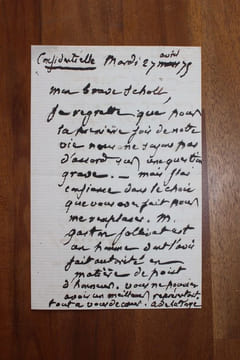 Confidentielle Mardi 27 avril 75
mon brave Scholl,
Je regrette que pour
la première fois de notre
vie nous ne soyons pas
d'accord sur une question
grave. — mais j'ai
confiance dans le choix
que vous avez fait pour
me remplacer. M.
gaston Jollivet est
un homme dont l'avis
fait autorité en
matière de point
d'honneur. vous ne pouviez
avoir un meilleur représentant.
tout a vous de cœur.